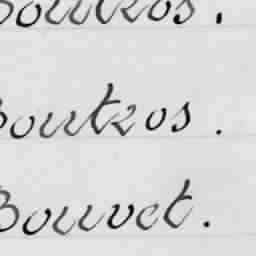 Boutros.
Boutros.
Bouvet.